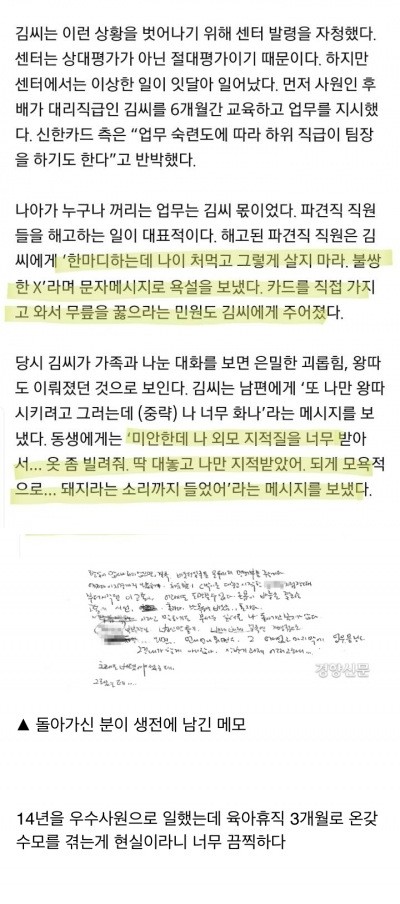 김씨는 이런 상황을 벗어나기 위해 센터 발령을 자청했다.
센터는 상대평가가 아닌 절대평가이기 때문이다. 하지만
센터에서는 이상한 일이 잇달아 일어났다. 먼저 사원인 후
배가 대리직급인 김씨를 6개월간 교육하고 업무를 지시했
다. 신한카드 측은 “업무 숙련도에 따라 하위 직급이 팀장
을 하기도 한다”고 반박했다.
나아가 누구나 꺼리는 업무는 김씨 몫이었다. 파견직 직원
들을 해고하는 일이 대표적이다. 해고된 파견직 직원은 김
씨에게 ‘한마디하는데 나이 처먹고 그렇게 살지 마라. 불쌍
한 X’라며 문자메시지로 욕설을 보냈다. 카드를 직접 가지
고 와서 무릎을 꿇으라는 민원도 김씨에게 주어졌다.
당시 김씨가 가족과 나눈 대화를 보면 은밀한 괴롭힘, 왕따
도 이뤄졌던 것으로 보인다. 김씨는 남편에게 ‘또 나만 왕따
시키려고 그러는데 (중략) 나 너무 화나’라는 메시지를 보
냈다. 동생에게는 ‘미안한데 나 외모 지적질을 너무 받아
서... 옷 좀 빌려줘. 딱 대놓고 나만 지적받았어. 되게 모욕적
으로... 돼지라는 소리까지 들었어’라는 메시지를 보냈다.
경향신문
▲ 돌아가신 분이 생전에 남긴 메모
14년을 우수사원으로 일했는데 육아휴직 3개월로 온갖
수모를 겪는게 현실이라니 너무 끔찍하다